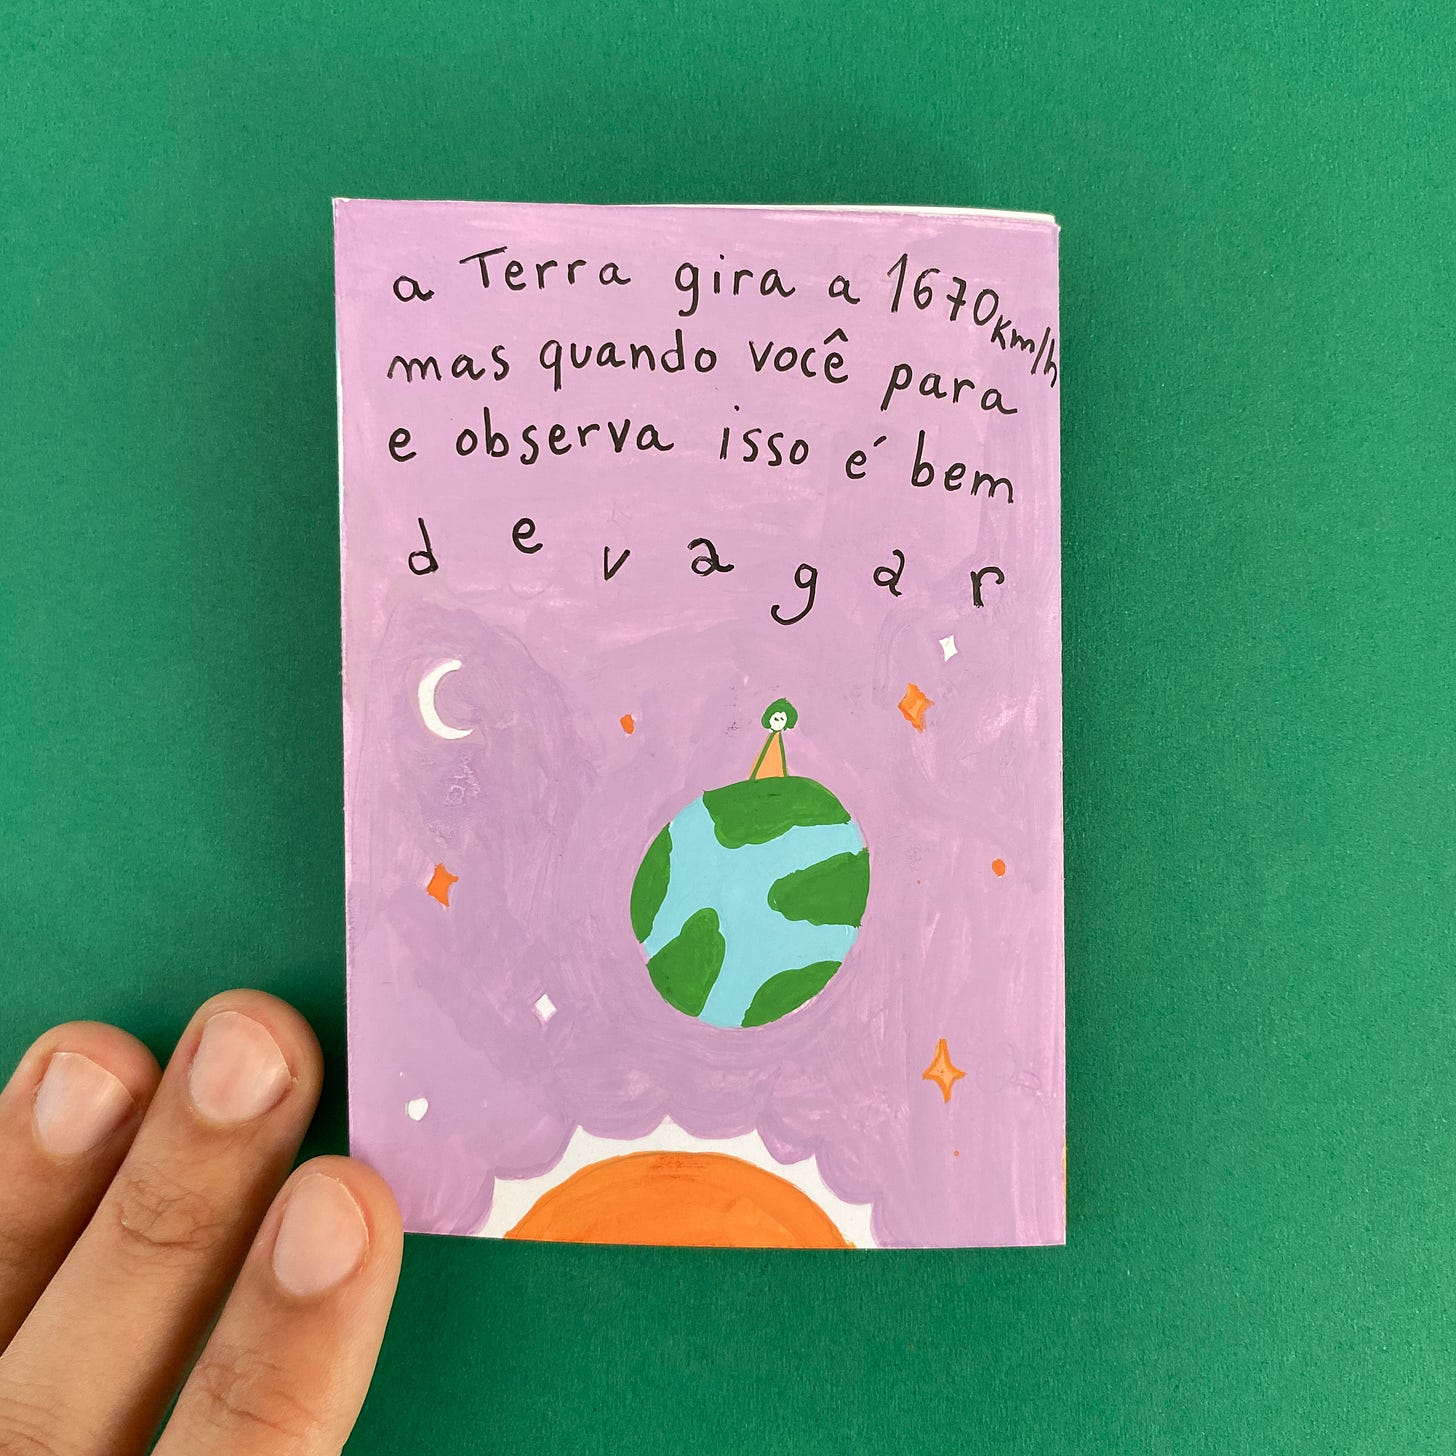 a Terra gira a 1670km/h
mas quando você para
e observa isso é bem
d e v a g a r